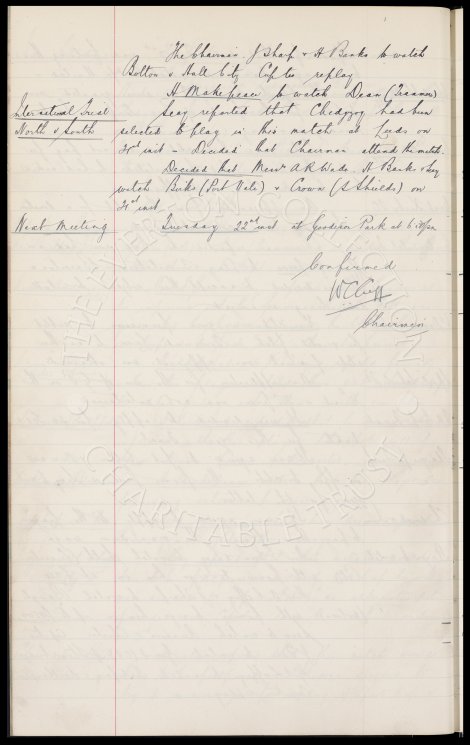 The Chairman J Sharp & H Banks to watch
Bolton v Hull City Cup tie replay
H Makepeace to watch Dean (Tranmere)
International Trial
North v South
Secy reported that Chedgzoy had been
selected to play in this match at Leeds on
21st inst - Decided that Chairman attend the match.
Decided that Messrs A R Wade, H Banks & Secy
watch Birks (Port Vale) & Crown (S Shields) on
21st inst.
Next Meeting
Tuesday 22nd inst at Goodison Park at 6.30pm
Confirmed
W C Cuff
Chairman
THE EVERTON COLLECTION
CHARITABLE TRUST